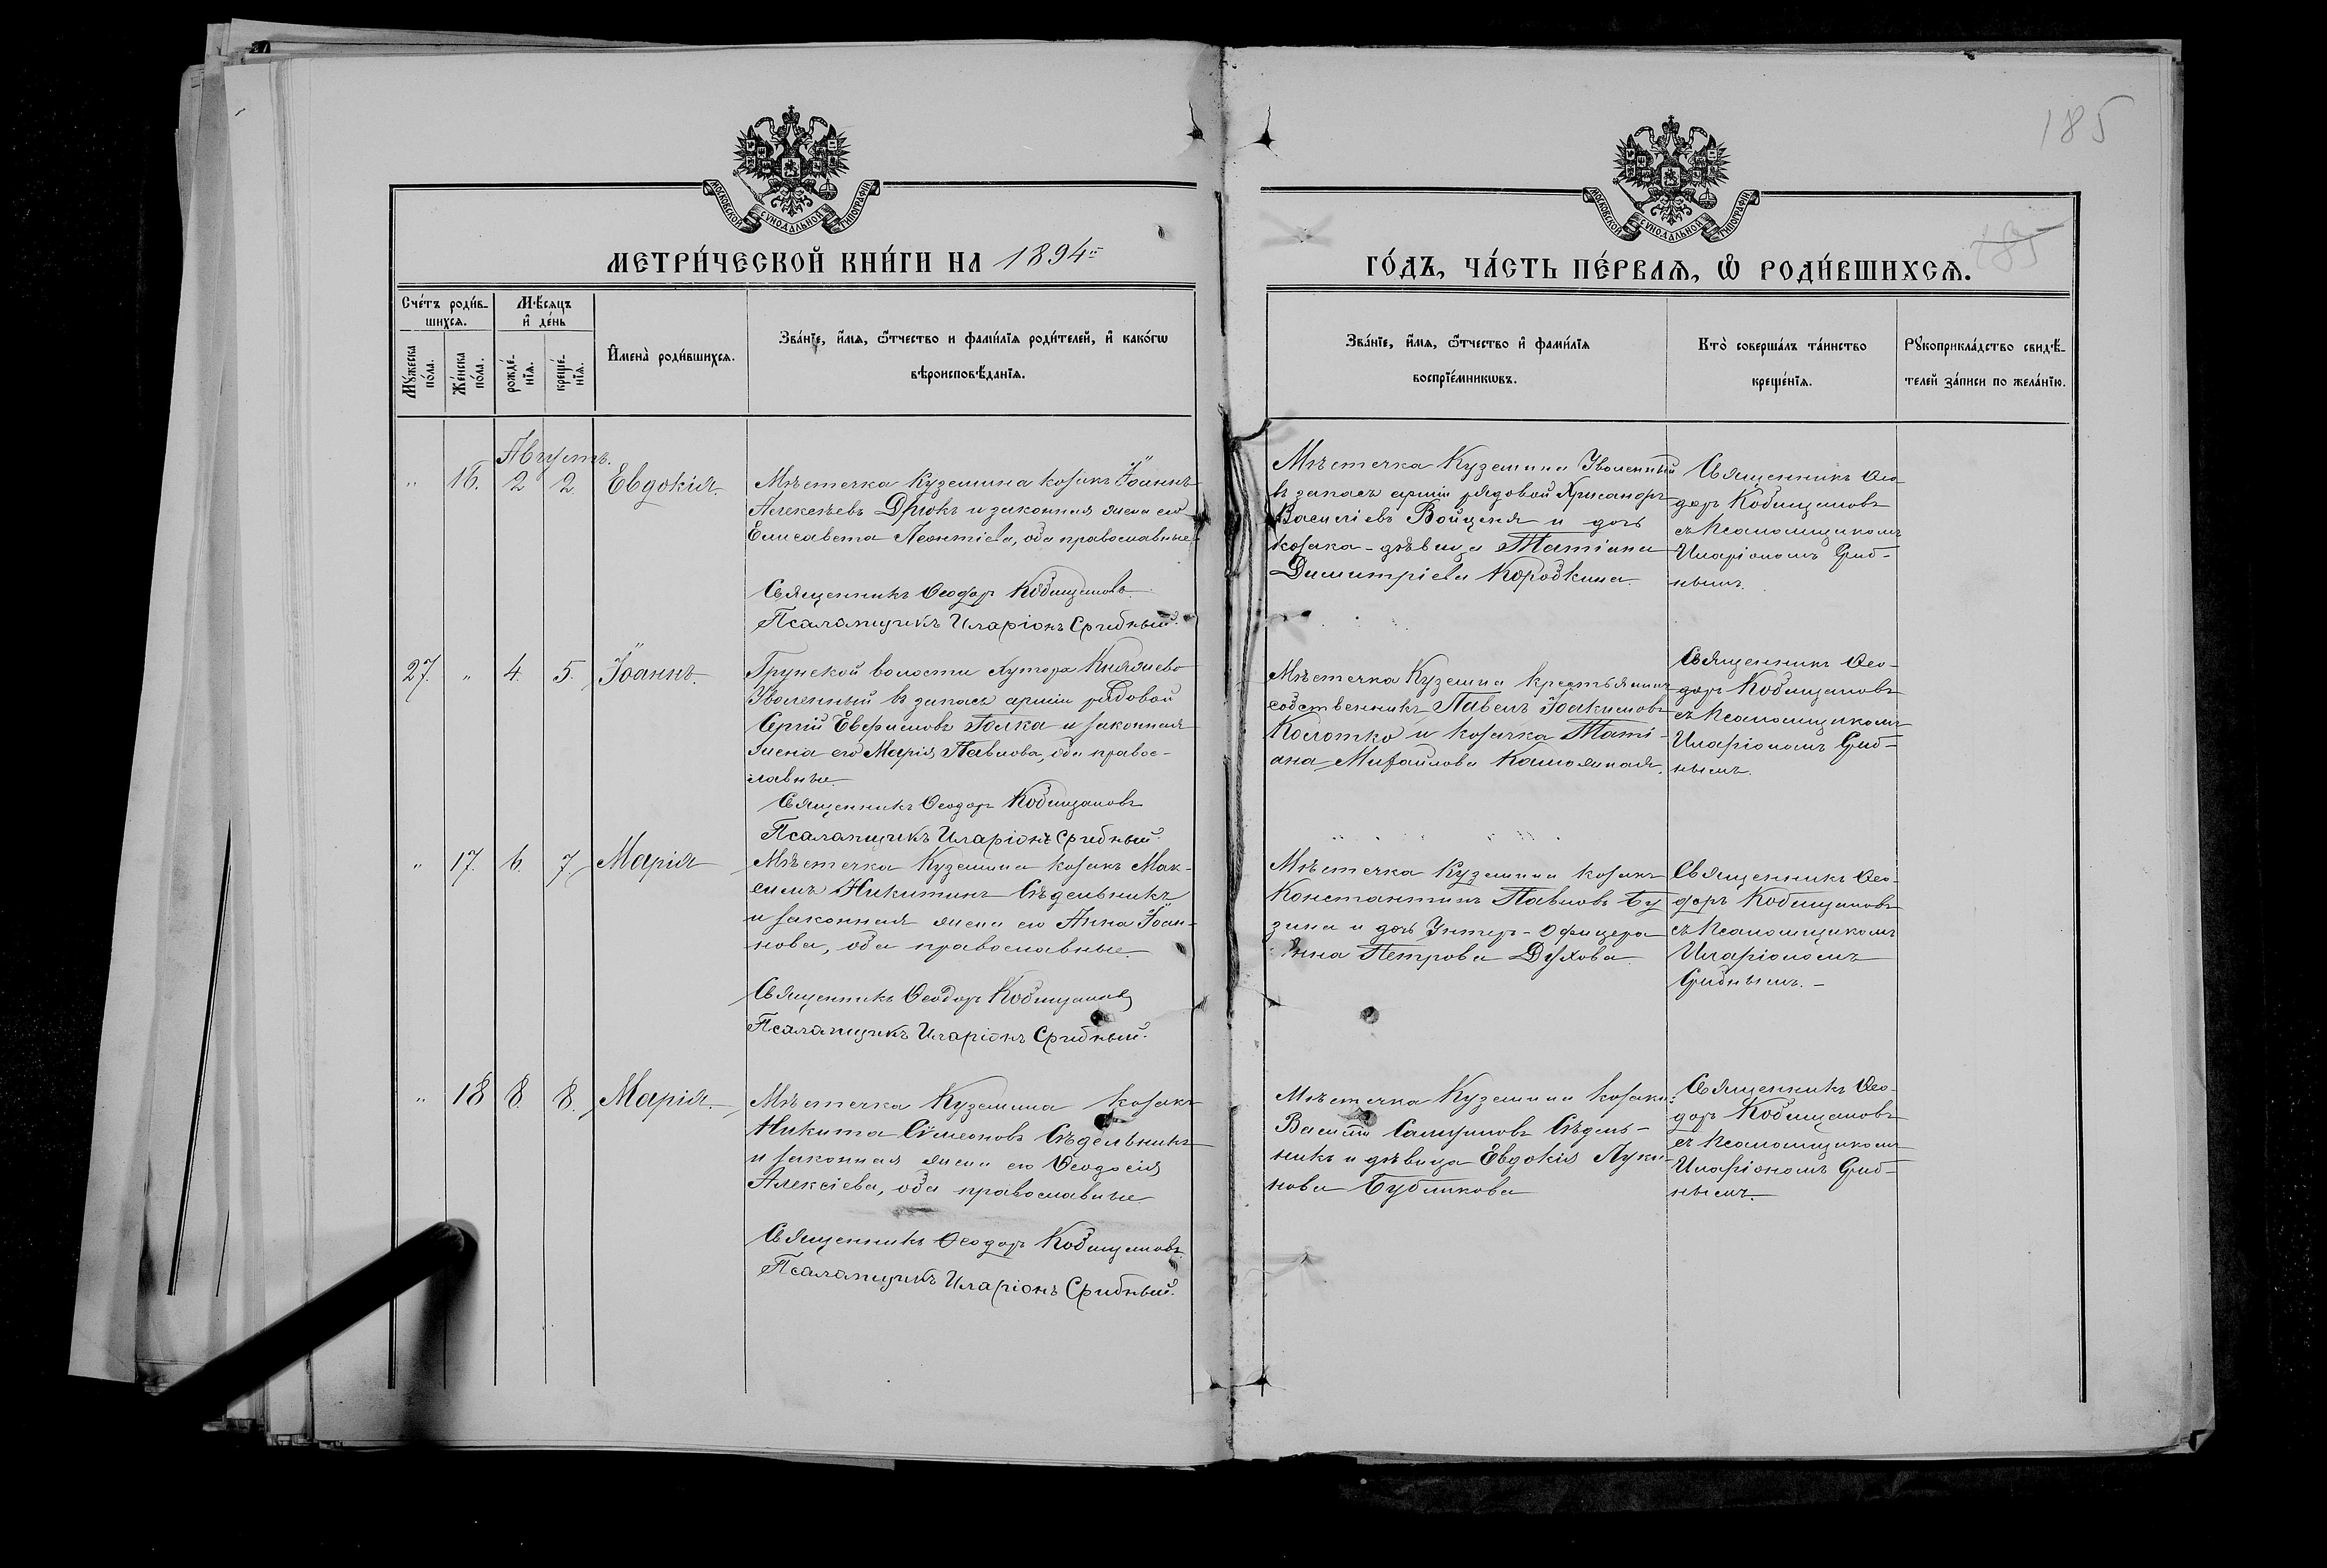 185
МОСКОВСКОЙ СѴНОДАЛЬНОЙ ТИПОГРАФІИ
МОСКОВСКОЙ СѴНОДАЛЬНОЙ ТИПОГРАФІИ
МЕТРИ́ЧЕСКОЙ КНИ́ГИ НА 1894 г.
ГО́ДЪ, ЧА́СТЬ ПЕ́РВАЯ, Ѡ РОДИ́ВШИХСЯ.
Сче́тъ роди́в-
шихся.
Мꙋ́жеска
по́ла.
Же́нска
по́ла.
Мѣ́сяцъ
и де́нь
рожде́-
нїя.
креще́-
нїя.
И҆мена̀ роди́вшихся.
Зва́нїе, и҆́мя, ѻ҆́тчество и фами́лїя роди́телей, и҆ како́гѡ
вѣроисповѣ́данїя.
Зва́нїе, и҆́мя, ѻ҆́тчество и҆ фами́лїя
воспрїе́мникѡвъ.
Кто̀ соверша́лъ та́инство
креще́нїя.
Рꙋкоприкла́дство свидѣ́-
телей за́писи по жела́нїю.
Августъ.
" 16. 2 2 Евдокія.
Мѣстечка Куземина козакъ Іоаннъ
Алексѣевъ Дрюкъ и законная жена его
Елисавета Леонтіева, оба православные
Священникъ Ѳеодоръ Кобищановъ.
Псаломщикъ Иларіонъ Срибный.
Мѣстечка Куземина Уволенный
въ запасъ арміи рядовой Хрисанфъ
Василіевъ Войценя и дочь
козака - дѣвица Татіана
Димитріева Коробкина.
Священникъ Ѳео-
доръ Кобищановъ
съ Псаломщикомъ
Иларіономъ Сриб-
нымъ.
27. " 4. 5. Іоаннъ.
Грунской волости хутора Княжево
Уволенный въ запасъ арміи рядовой
Сергій Евфимовъ Голка и законная
жена его Марія Павлова, оба правос-
лавные
Священникъ Ѳеодоръ Кобищановъ
Псаломщикъ Иларіонъ Срибный.
Мѣстечка Куземина крестьянинъ
собственникъ Павелъ Іоакимовъ
Колотко и козачка Таті-
ана Михайлова
Священникъ Ѳео-
доръ Кобищановъ
съ Псаломщикомъ
Иларіономъ Сриб-
нымъ.
" 17. 6. 7. Марія
Мѣстечка Куземина козакъ Мак-
симъ Никитинъ Сѣдельникъ
и законная жена его Анна Іоан-
нова, оба православные.
Священникъ Ѳеодоръ Кобищановъ
Псаломщикъ Иларіонъ Срибный.
Мѣстечка Куземина козакъ
Константинъ Павловъ Бу
зина и дочь Унтеръ-офицера
Анна Петрова Духова.
Священникъ Ѳео-
доръ Кобищановъ
съ Псаломщикомъ
Иларіономъ
Срибнымъ. -
" 18 8. 8. Марія.
Мѣстечка Куземина козакъ
Никита Сѵмеоновъ Сѣдельникъ
и законная жена его Ѳеодосія
Алексіева, оба православные
Священникъ Ѳеодоръ Кобищановъ.
Псаломщикъ Иларіонъ Срибный.
Мѣстечка Куземина козаки:
Василій Сампсоновъ Сѣдель-
никъ и дѣвица Евдокія Луки-
нова Бубликова
Священникъ Ѳео-
доръ Кобищановъ
съ Псаломщикомъ
Иларіономъ Сриб-
нымъ.